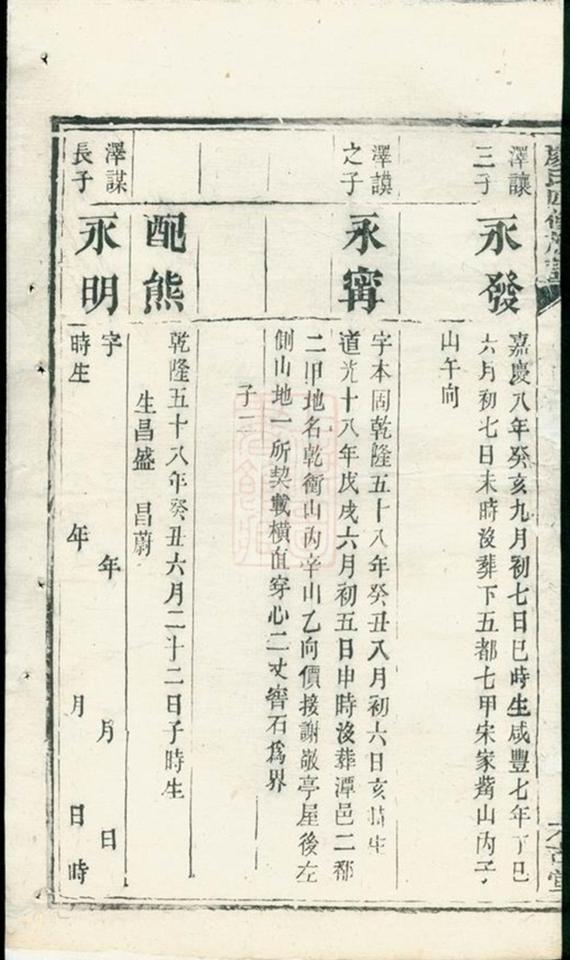 廖氏四修族譜
澤讓
三子
永發
嘉慶八年癸亥九月初七日巳時生咸豐七年丁巳
六月初七日未時沒葬下五都七甲宋家嘴山內子
山午向
澤謨
之子
永甯
字本固乾隆五十八年癸丑八月初六日亥時生
道光十八年戊戌六月初五日申時沒葬潭邑二都
二甲地名乾衝山內辛山乙向價接謝敬亭屋後左
側山地一所契載橫直穿心二丈窖石為界
子二
配熊
乾隆五十八年癸丑六月二十二日子時生
生昌盛 昌蔚
澤謀
長子
永明
字 年 月 日 時
時生 年 月 日